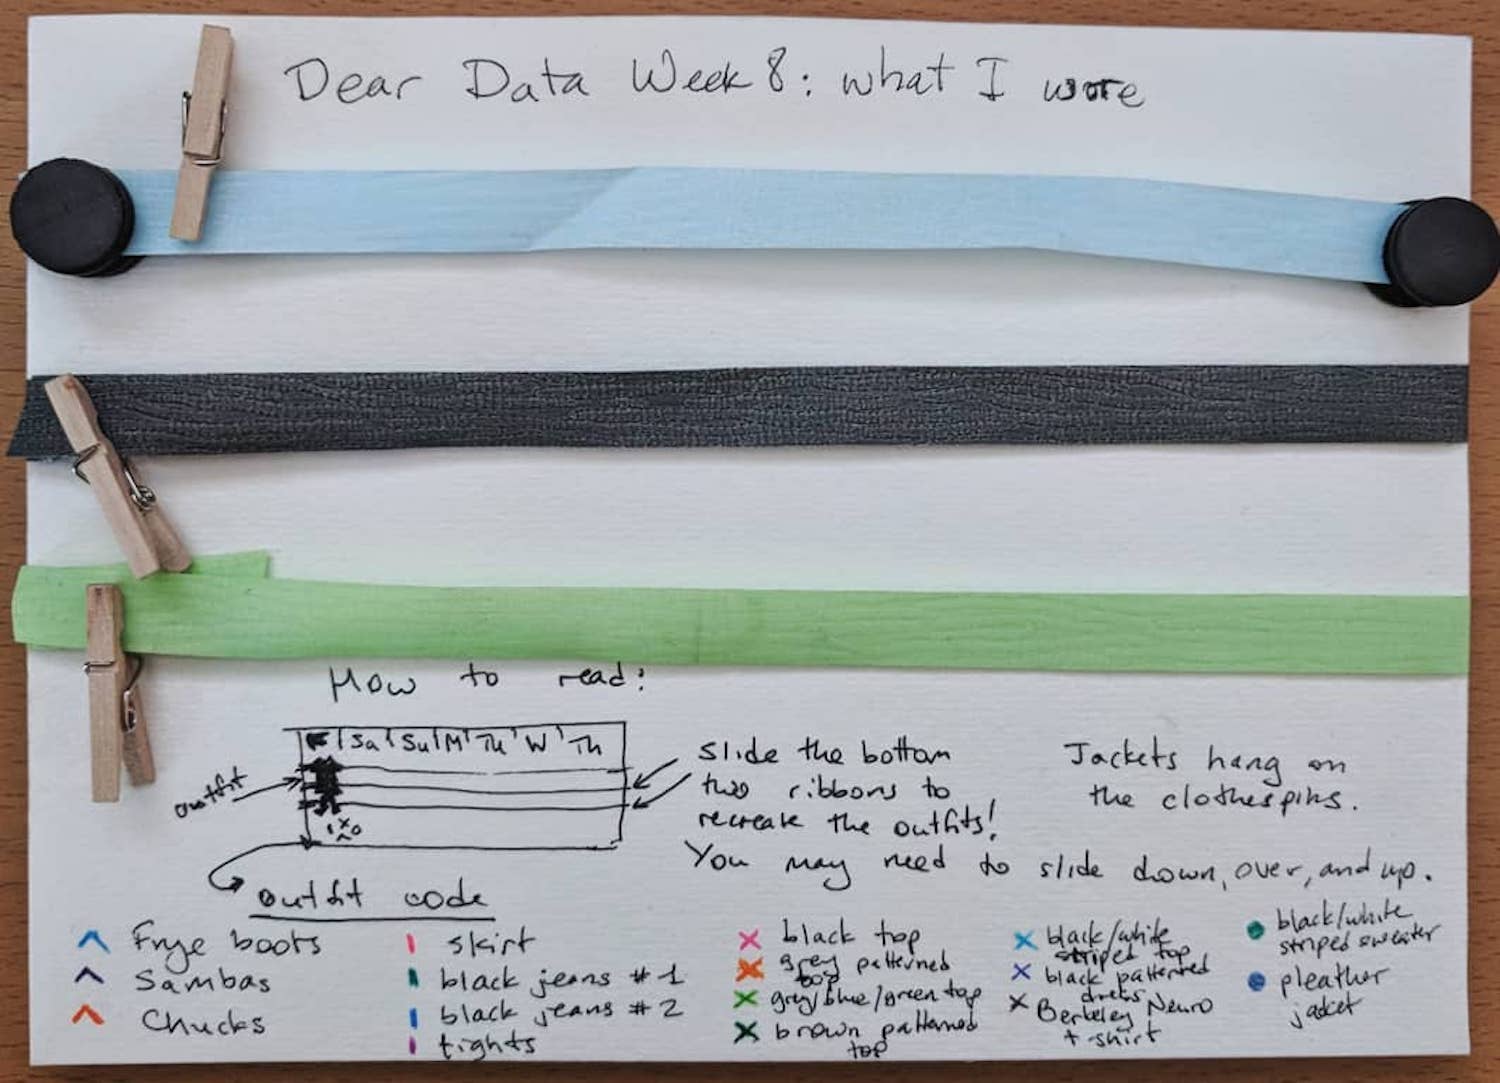 Dear Data Week 8: what I wore
How to read:
F Sa Su M Tu W Th
outfit
Slide the bottom
two ribbons to
recreate the outfits!
You may need to slide down, over, and up.
Jackets hang on
the clothespins.
outfit code
Frye boots
Sambas
Chucks
skirt
black jeans #1
black jeans #2
tights
black top
grey patterned
top
grey/blue/green top
brown patterned
top
black/white
striped top
black patterned
dress
Berkeley Neuro
t-shirt
black/white
striped sweater
pleather
jacket